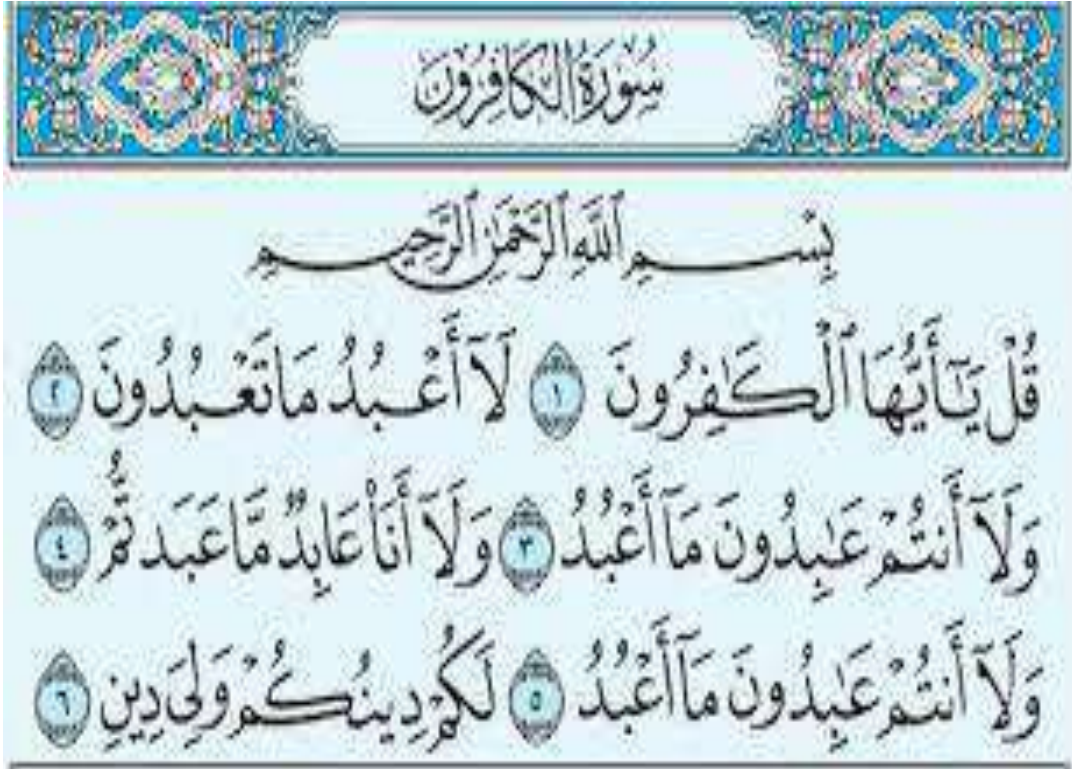 سُورَةُ الكَافِرُونَ
بِسْمِ ٱللَّهِ ٱلرَّحْمَٰنِ ٱلرَّحِيمِ
قُلْ يَٰٓأَيُّهَا ٱلْكَٰفِرُونَ ١ لَآ أَعْبُدُ مَا تَعْبُدُونَ ٢
وَلَآ أَنتُمْ عَٰبِدُونَ مَآ أَعْبُدُ ٣ وَلَآ أَنَا۠ عَابِدٌ مَّا عَبَدتُّمْ ٤
وَلَآ أَنتُمْ عَٰبِدُونَ مَآ أَعْبُدُ ٥ لَكُمْ دِينُكُمْ وَلِىَ دِينِ ٦